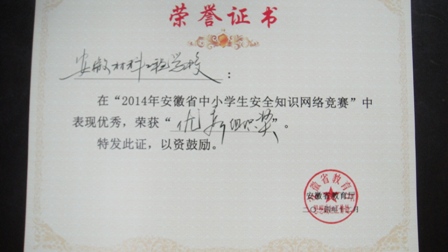 荣誉证书
安徽材料工程学校：
在“2014年安徽省中小学生安全知识网络竞赛”中
表现优秀，荣获“优秀组织奖”。
特发此证，以资鼓励。
安徽省教育厅